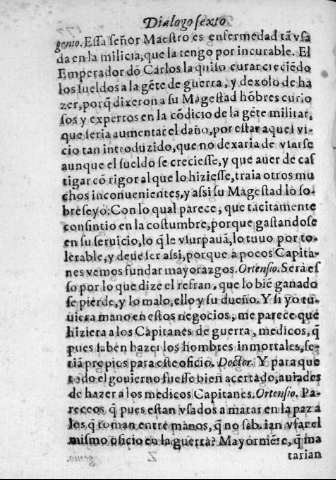 Dialogo sexto
genio. Essa señor Maestro es enfermedad tã vsa
da en la milicia, que la tengo por incurable. El
Emperador dõ Carlos la quiso curar creciẽdo
los sueldos a la gẽte de guerra, y dexolo de ha
zer, porq̃ dixeron a su Magestad hõbres curio
sos y expertos en la cõdicio de la gẽte militar,
que seria aumentar el daño, por estar aquel vi
cio tan introduzido, que no dexaria de vsarse
aunque el sueldo se creciesse, y que auer de cas
tigar cõ rigor al que lo hiziesse, traia otros mu
chos inconuenientes, y assi su Magestad lo so-
breseyo: Con lo qual parece, que tacitamente
consintio en la costumbre, porque gastandose
en su seruicio, lo q̃ le vsurpauã, lo tuuo por to-
lerable, y deue ser assi, porque a pocos Capita-
nes vemos fundar mayorazgos. Ortensio. Sera es
so por lo que dize el refran, que lo biẽ ganado
se pierde, y lo malo, ello y su dueño. Y si yo tu-
uiera mano en estos negocios, me parece que
hiziera a los Capitanes de guerra, medicos, q̃
pues saben hazer los hombres inmortales, se-
riã propios para este oficio. Doctor. Y para que
todo el gouierno fuesse bien acertado, auiades
de hazer a los medicos Capitanes. Ortensio. Pa-
receos q̃ pues estan vsados a matar en la paz a
los q̃ toman entre manos, q̃ no sabrian vsar el
mismo oficio en la guerra? Mayormẽte, q̃ ma
tarian